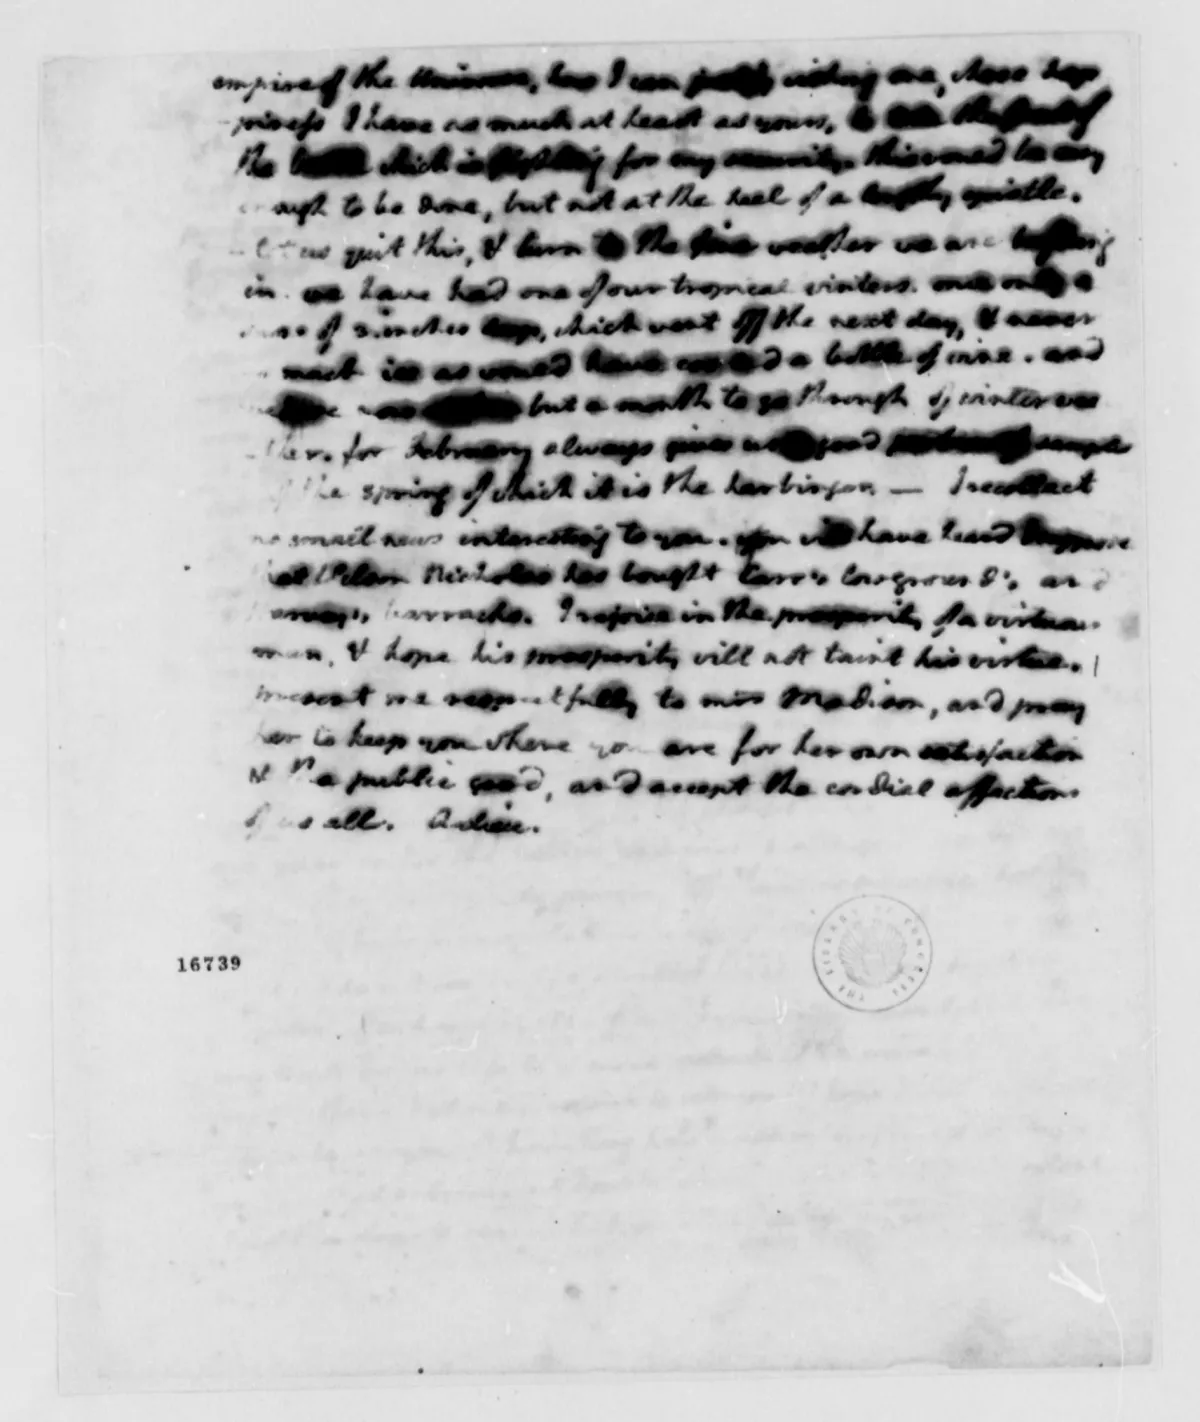 empire of the Universe, how I can justify wishing one, whose hap
-piness I have as much at heart as yours, to take the front of
the battle which is fighting for my security. this would be easy
enough to be done, but not at the heel of a lengthy epistle.
let us quit this, & turn to the fine weather we are basking
in. we have had one of our tropical winters. once only a
snow of 3. inches deep, which went off the next day, & never
as much ice as would have cooled a bottle of wine. and
but a month to go through of winter wea
ther. for February always gives us good samples
of the spring of which it is the harbinger. — I recollect
no small news interesting to you. you will have heard I suppose
that Wilson Nicholas has bought Carr's Carsgrove &c. and
Harvey's barracks. I rejoice in the prosperity of a virtuous
man, & hope his prosperity will not taint his virtue.
present me respectfully to mrs Madison, and pray
her to keep you where you are for her own satisfaction
& the public good, and accept the cordial affections
of us all. Adieu.
16739
THE LIBRARY OF CONGRESS